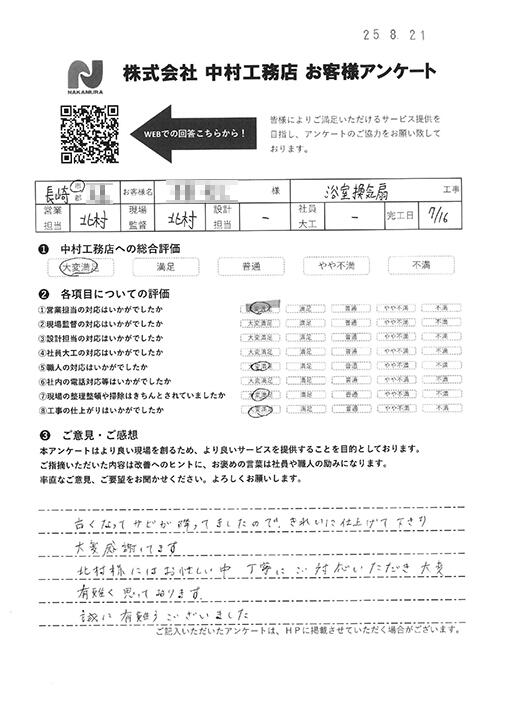 25 8. 21
NAKAMURA
株式会社 中村工務店 お客様アンケート
WEBでの回答こちらから！
皆様によりご満足いただけるサービス提供を
目指し、アンケートのご協力をお願い致して
おります。
長崎 市 郡 お客様名 様 浴室換気扇 工事
営業担当 北村 現場監督 北村 設計担当 － 社員大工 － 完工日 7/16
❶ 中村工務店への総合評価
大変満足 満足 普通 やや不満 不満
❷ 各項目についての評価
①営業担当の対応はいかがでしたか 大変満足 満足 普通 やや不満 不満
②現場監督の対応はいかがでしたか 大変満足 満足 普通 やや不満 不満
③設計担当の対応はいかがでしたか 大変満足 満足 普通 やや不満 不満
④社員大工の対応はいかがでしたか 大変満足 満足 普通 やや不満 不満
⑤職人の対応はいかがでしたか 大変満足 満足 普通 やや不満 不満
⑥社内の電話対応等はいかがでしたか 大変満足 満足 普通 やや不満 不満
⑦現場の整理整頓や掃除はきちんとされていましたか 大変満足 満足 普通 やや不満 不満
⑧工事の仕上がりはいかがでしたか 大変満足 満足 普通 やや不満 不満
❸ ご意見・ご感想
本アンケートはより良い現場を創るため、より良いサービスを提供することを目的としております。
ご指摘いただいた内容は改善へのヒントに、お褒めの言葉は社員や職人の励みになります。
率直なご意見、ご要望をお聞かせください。よろしくお願いします。
古くなってサビが降ってましたので、きれいに仕上げて下さり
大変感謝してます
北村様にはお忙しい中 丁寧にご対応いただき 大変
有難く思っております。
誠に有難うございました
ご記入いただいたアンケートは、HPに掲載させていただく場合がございます。